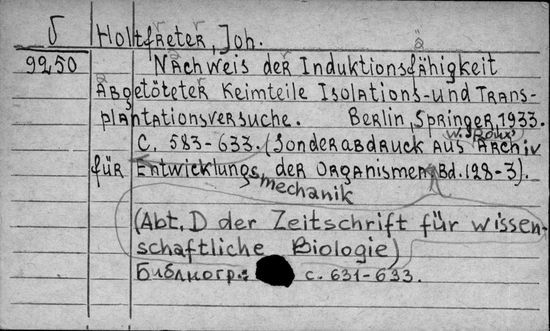 5 Holtfreter, Joh.
9250 Nachweis der Induktionsfähigkeit
abgetöteter Keimteile Isolations- und Trans-
plantationsversuche. Berlin, Springer, 1933.
W. Roux'
С. 583-633. (Sonderabdruck aus Archiv
für Entwicklungs der Organismen Bd. 128-3).
mechanik
(Abt. D der Zeitschrift für wissen-
schaftliche Biologie)
Библиогр.: с. 631-633.